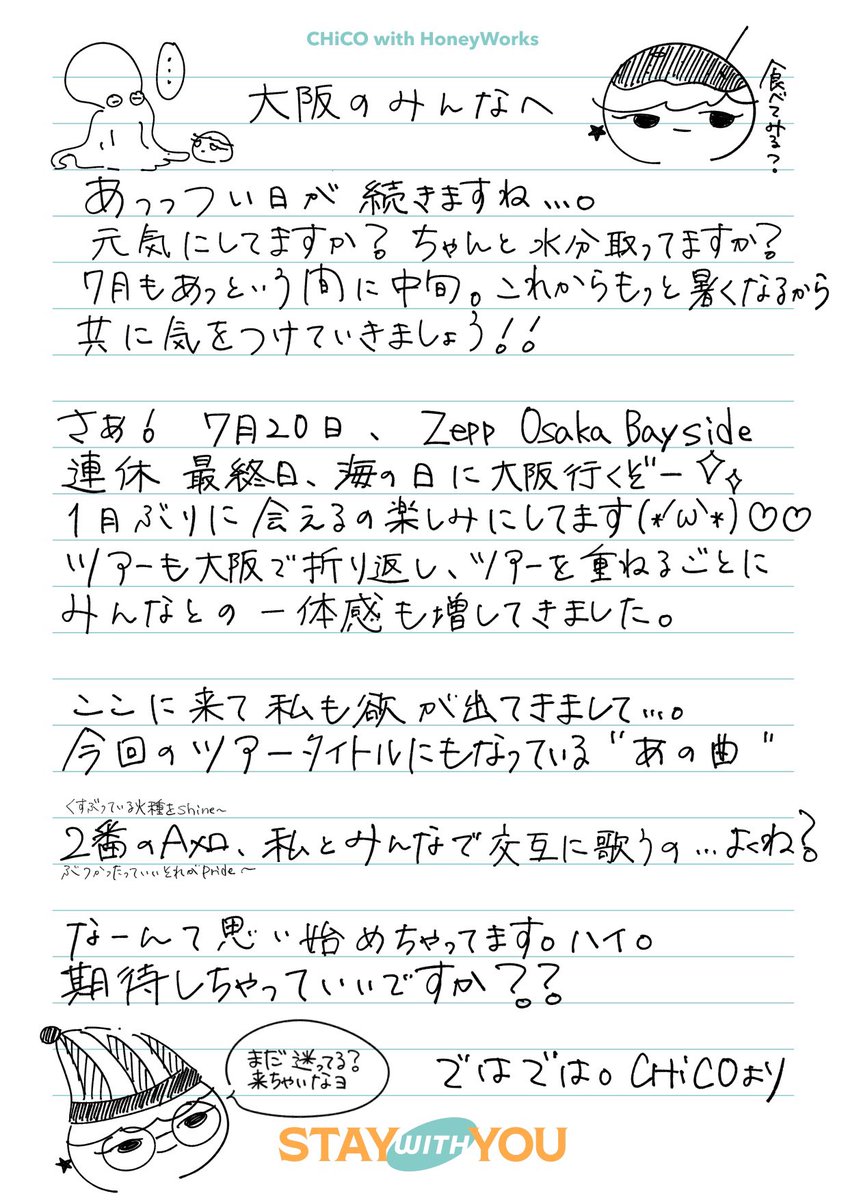 CHiCO with HoneyWorks
…
大阪のみんなへ
食べてみる？
あっっつい日が続きますね…。
元気にしてますか？ちゃんと水分取ってますか？
7月もあっという間に中旬。これからもっと暑くなるから
共に気をつけていきましょう！！
さあ！ 7月20日、Zepp Osaka Bayside
連休最終日、海の日に大阪行くぞー
1月ぶりに会えるの楽しみにしてます(*´ω`*)♡♡
ツアーも大阪で折り返し、ツアーを重ねるごとに
みんなとの一体感も増してきました。
ここに来て私も欲が出てきまして…。
今回のツアータイトルにもなっている"あの曲"
くすぶっている火種をshine〜
2番のAメロ、私とみんなで交互に歌うの…よくね？
ぶつかったっていいそれがpride〜
なーんて思い始めちゃってます。ハイ。
期待しちゃっていいですか？？
まだ迷ってる？
来ちゃいなヨ
ではでは。CHiCOより
STAY WITH YOU